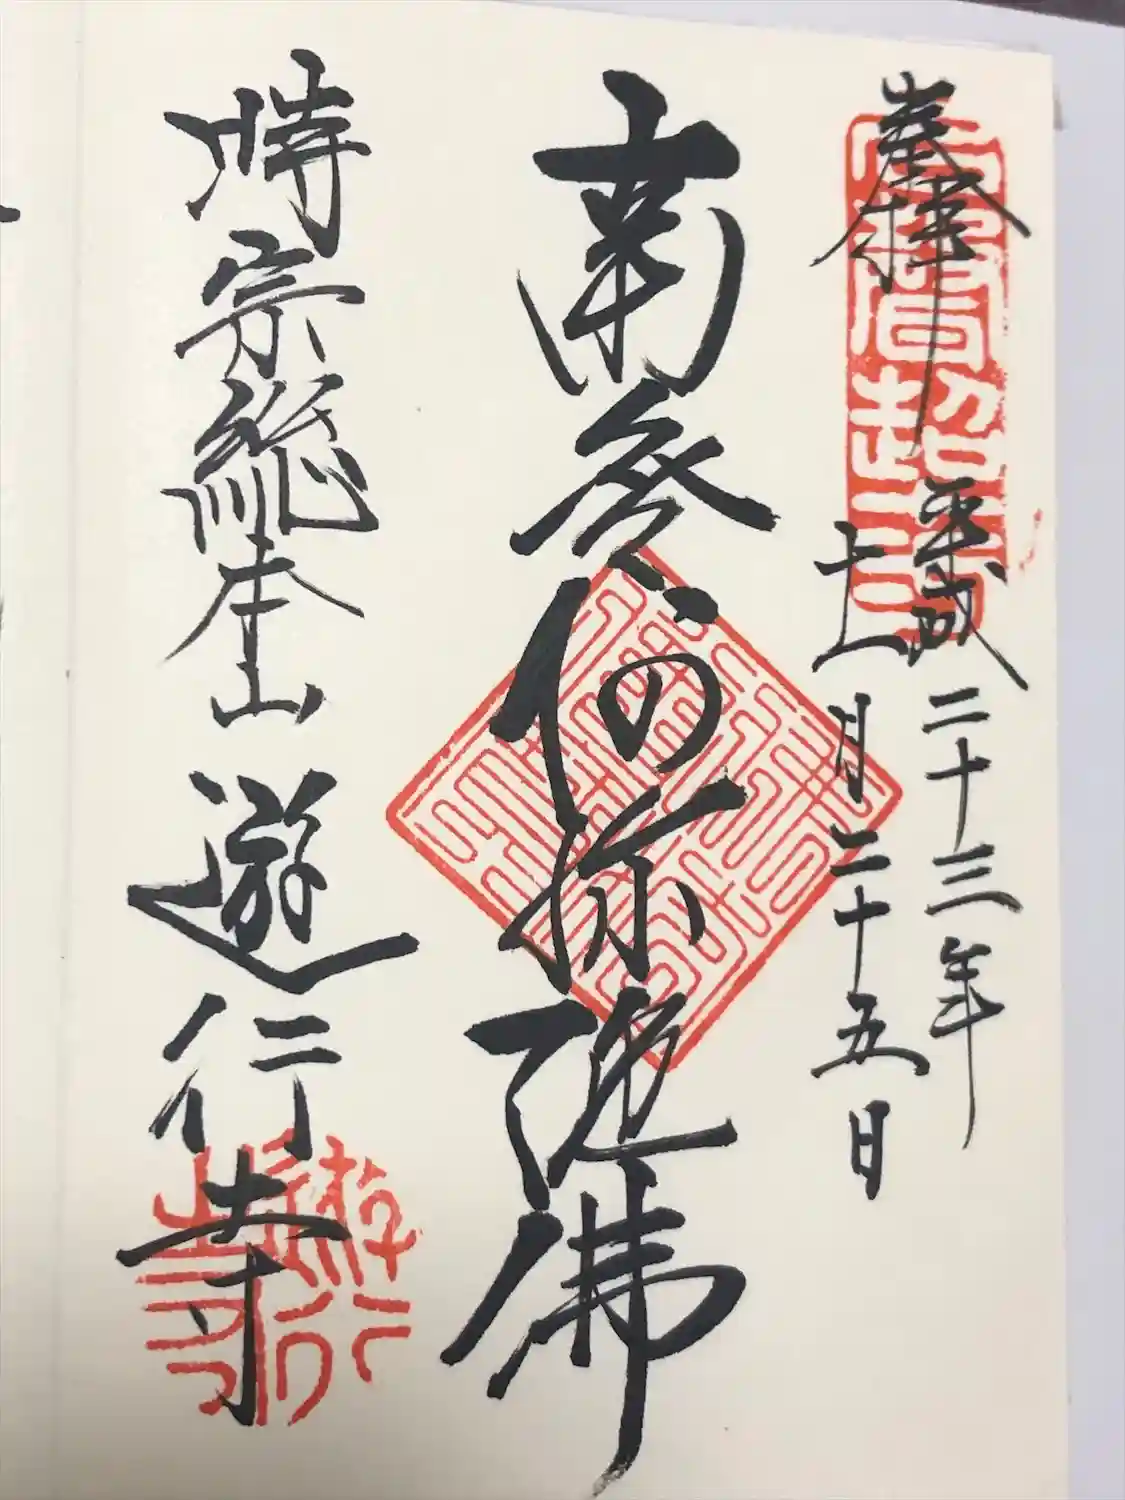 奉拝
平成二十三年
十一月二十五日
南無阿弥陀佛
時宗総本山
遊行寺